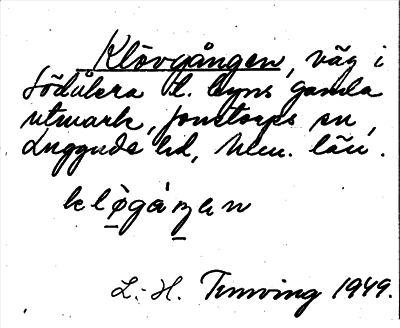 Klövgången, väg i
Södåkra t. byns gamla
utmark, Jonstorps sn,
Luggude hd, Mlm. län.
kløgåŋen
L.-H. Tunving 1949.